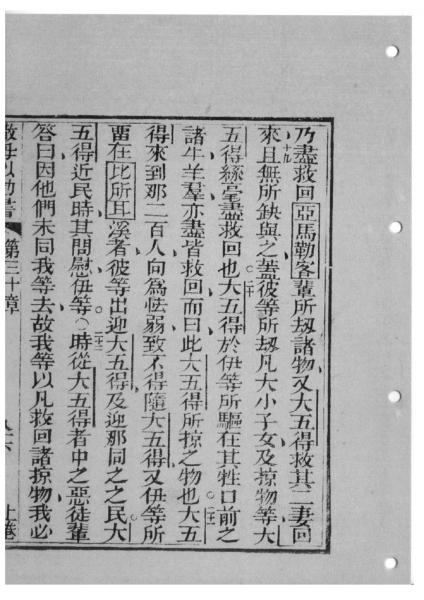 乃盡救回亞馬勒客輩所刼諸物又大五得救其二妻回
十九
來且無所缺與之蓋彼等所刼凡大小子女及掠物等大
五得絲毫盡救回也二十大五得於伊等所驅在其牲口前之
諸牛羊羣亦盡皆救回而曰此大五得所掠之物也二十一大五
得來到那二百人向為怯弱致不得隨大五得又伊等所
畱在比所耳溪者彼等出迎大五得及迎那同之之民大
五得近民時其問慰伊等二十二時從大五得者中之惡徒輩
答曰因他們未同我等去故我等以凡救回諸掠物我必
第三十章